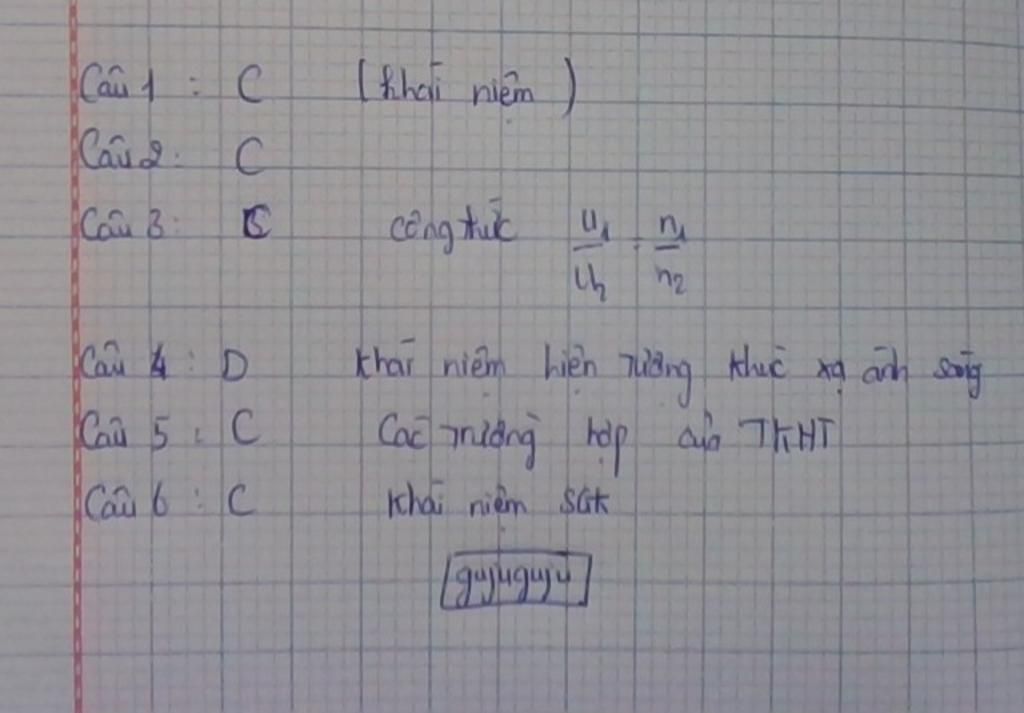 Câu 1 : C (Khái niệm)
Câu 2 : C
Câu 3 : công thức U1/U2 = n1/n2
Câu 4 : D Khái niệm hiện tượng khúc xạ ánh sáng
Câu 5 : C Các trường hợp của TKHT
Câu 6 : C Khái niệm SGK
gujuguju